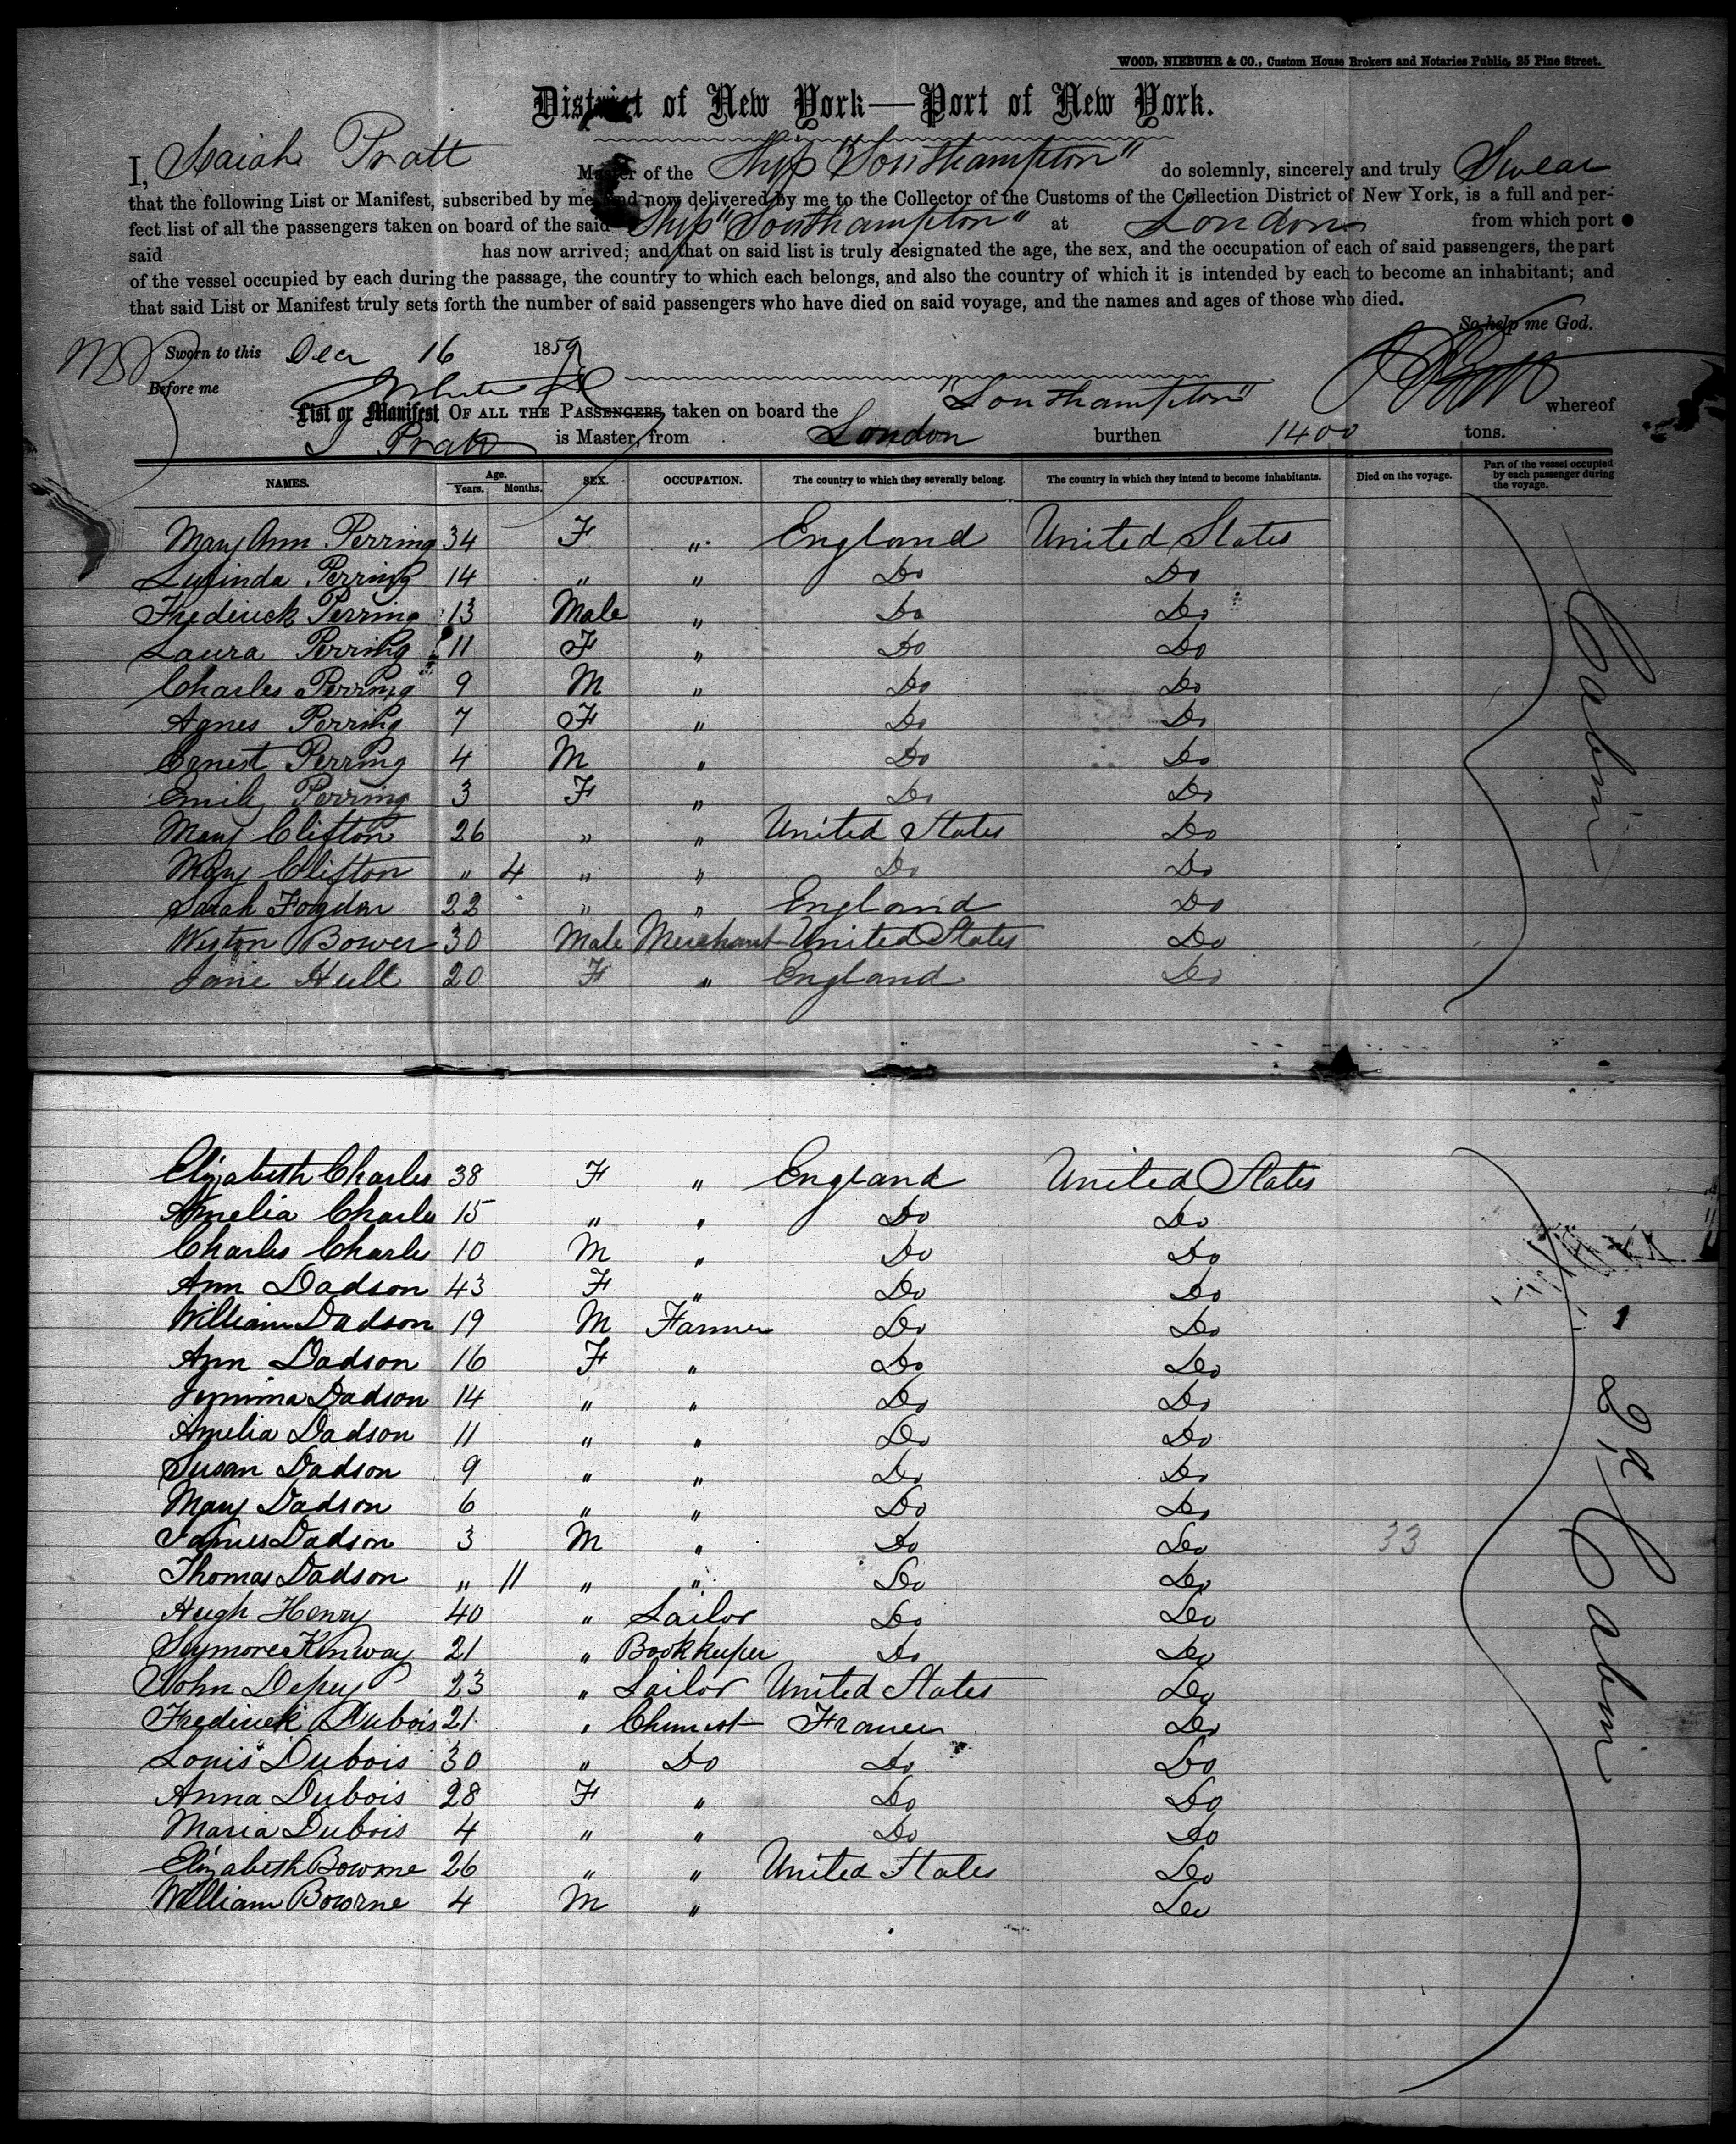 WOOD, NIEBUHR & CO., Custom House Brokers and Notaries Public, 25 Pine Street.
District of New York—Port of New York.
I, Isaiah Pratt Master of the Ship "Southampton" do solemnly, sincerely and truly Swear
that the following List or Manifest, subscribed by me and now delivered by me to the Collector of the Customs of the Collection District of New York, is a full and per-
fect list of all the passengers taken on board of the said Ship "Southampton" at London from which port
said has now arrived; and that on said list is truly designated the age, the sex, and the occupation of each of said passengers, the part
of the vessel occupied by each during the passage, the country to which each belongs, and also the country of which it is intended by each to become an inhabitant; and
that said List or Manifest truly sets forth the number of said passengers who have died on said voyage, and the names and ages of those who died.
So help me God.
Sworn to this Decr 16 1859
Before me
List or Manifest OF ALL THE PASSENGERS taken on board the "Southampton" whereof
I Pratt is Master, from London burthen 1400 tons.
NAMES. Age. Years. Months. SEX. OCCUPATION. The country to which they severally belong. The country in which they intend to become inhabitants. Died on the voyage. Part of the vessel occupied by each passenger during the voyage.
Mary Ann Perring 34 F " England United States
Lusinda Perring 14 " " Do Do
Frederick Perring 13 Male " Do Do
Laura Perring 11 F " Do Do
Charles Perring 9 M " Do Do
Agnes Perring 7 F " Do Do
Ernest Perring 4 M " Do Do
Emily Perring 3 F " Do Do
Mary Clifton 26 " " United States Do
Mary Clifton " 4 " " Do Do
Sarah Fogden 22 " " England Do
Weston Bower 30 Male Merchant United States Do
Jane Hull 20 F " England Do
Cabin
Elizabeth Charles 38 F " England United States
Amelia Charles 15 " " Do Do
Charles Charles 10 M " Do Do
Ann Dadson 43 F " Do Do
William Dadson 19 M Farmer Do Do
Ann Dadson 16 F " Do Do
Jemima Dadson 14 " " Do Do
Amelia Dadson 11 " " Do Do
Susan Dadson 9 " " Do Do
Mary Dadson 6 " " Do Do
James Dadson 3 M " Do Do 33
Thomas Dadson " 11 " " Do Do
Hugh Henry 40 " Sailor Do Do
Seymore Kenway 21 " Bookkeeper Do Do
John Depuy 23 " Sailor United States Do
Frederick Dubois 21 " Chemist France Do
Louis Dubois 30 " Do Do Do
Anna Dubois 28 F " Do Do
Maria Dubois 4 " " Do Do
Elizabeth Bowrne 26 " " United States Do
William Bowrne 4 M " Do
Cabin